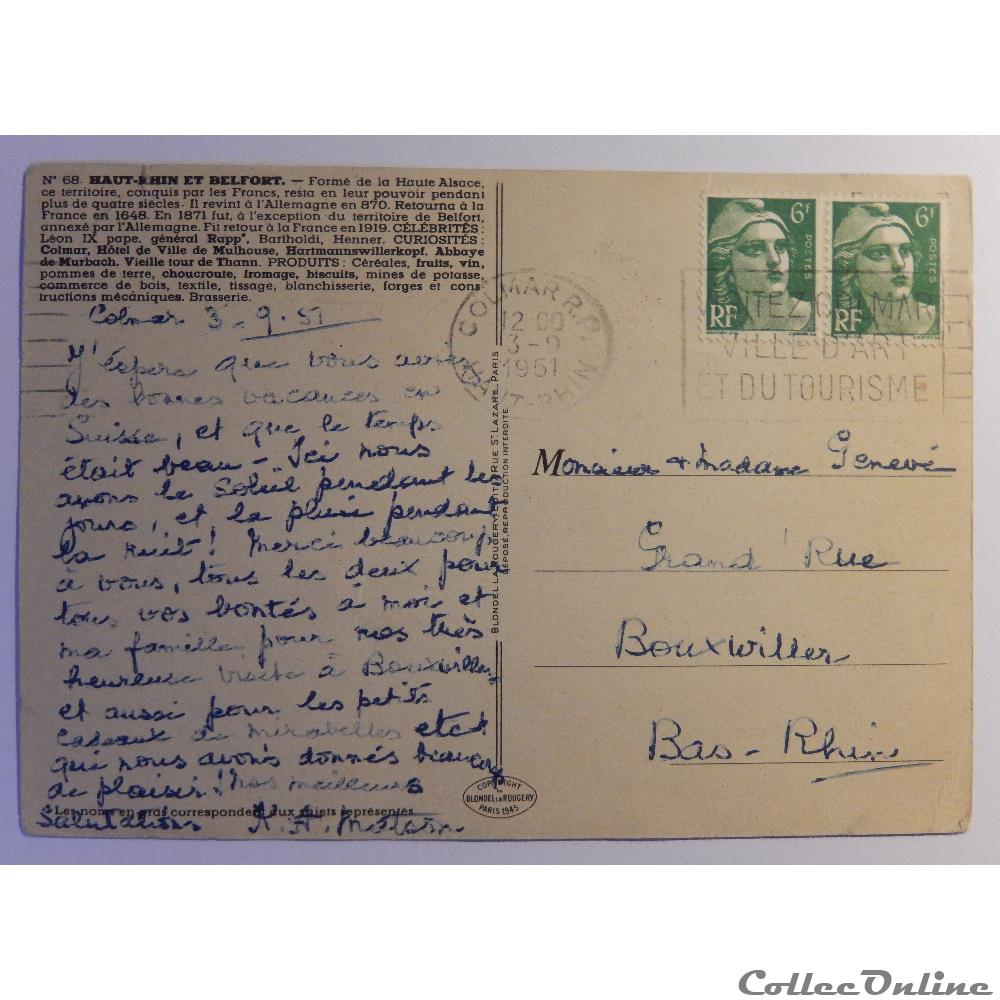 N° 68. HAUT-RHIN ET BELFORT. — Formé de la Haute Alsace,
ce territoire, conquis par les Francs, resta en leur pouvoir pendant
plus de quatre siècles. Il revint à l'Allemagne en 870. Retourna à la
France en 1648. En 1871 fut, à l'exception du territoire de Belfort,
annexé par l'Allemagne. Fit retour à la France en 1919. CÉLÉBRITÉS :
Léon IX pape, général Rapp*, Bartholdi, Henner. CURIOSITÉS :
Colmar, Hôtel de Ville de Mulhouse, Hartmannswillerkopf. Abbaye
de Murbach. Vieille tour de Thann. PRODUITS : Céréales, fruits, vin,
pommes de terre, choucroute, fromage, biscuits, mines de potasse,
commerce de bois, textile, tissage, blanchisserie, forges et cons
tructions mécaniques. Brasserie.
Colmar 3-9-51
J'éspère que vous aviez
des bonnes vacances en
Suisse, et que le temps
était beau - Ici nous
avons le Soleil pendant les
jours, et la pluie pendant
la nuit! Merci beaucoup
à vous, tous les deux pour
tous vos bontés à moi et
ma famille pour nos très
heureuse visite à Bouxwiller,
et aussi pour les petits
cadeaux de mirabelles etc!
qui nous avons donnés beaucoup
de plaisir! Nos meilleurs
*Les noms en gras correspondent aux sujets représentés
Salutations
BLONDEL LA ROUGERY, ÉDIT. RUE ST LAZARE-PARIS
DÉPOSÉ, REPRODUCTION INTERDITE
COPYRIGHT
by
BLONDEL LA ROUGERY
PARIS 1945
6F
POSTES
RF
6F
POSTES
RF
COLMAR R.P.
12 00
3-9
1951
HAUT-RHIN
VISITEZ COLMAR
VILLE D'ART
ET DU TOURISME
Monsieur + Madame Genevé
Grand'Rue
Bouxwiller
Bas-Rhin
CollecOnline